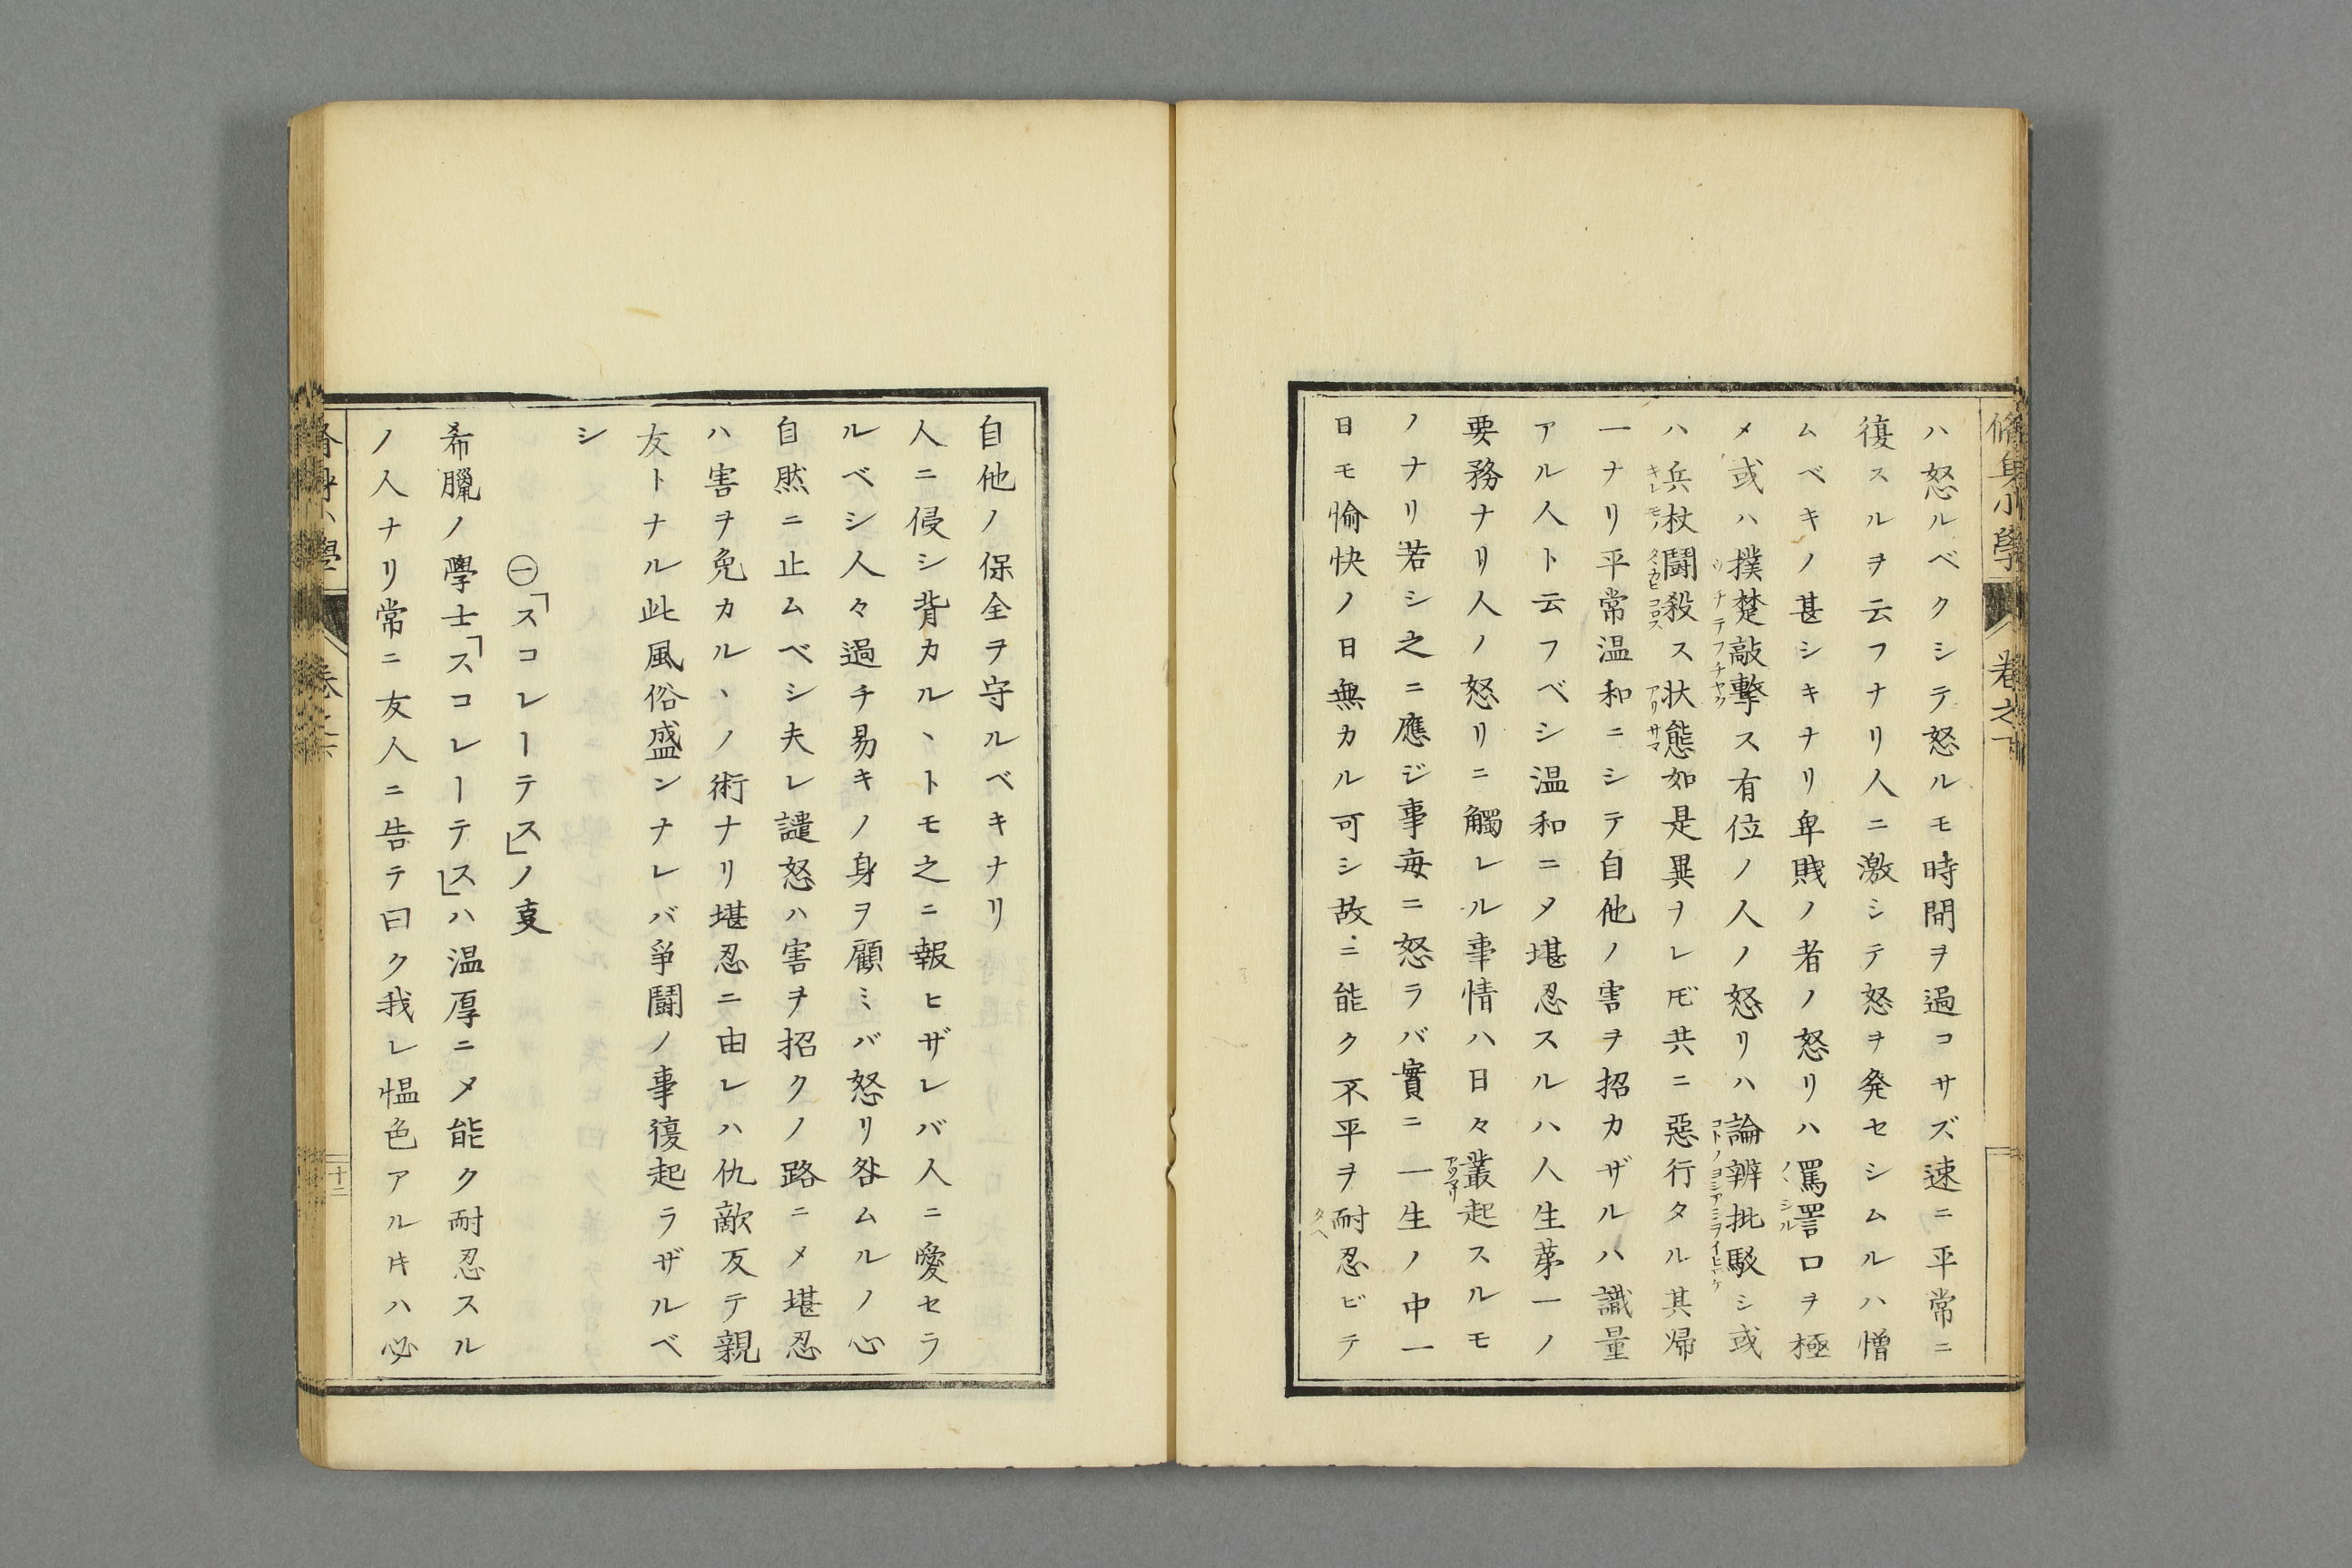 脩身小學 卷之
ハ怒ルベクシテ怒ルモ時間ヲ過コサズ速ニ平常ニ
復スルヲ云フナリ人ニ激シテ怒ヲ発セシムルハ憎
ムベキノ甚シキナリ卑賤ノ者ノ怒リハ罵詈口ヲ極
ノヽシル
メ或ハ撲楚敲擊ス有位ノ人ノ怒リハ論辨批駁シ或
ウチテフチヤク
コトノヨシアシヲイヒワケ
ハ兵杖鬪殺ス状態如是異ナレ𪜈共ニ惡行タル其帰
キレモノ
タヽカヒコロス
アリサマ
一ナリ平常温和ニシテ自他ノ害ヲ招カザルハ識量
アル人ト云フベシ温和ニ〆堪忍スルハ人生苐一ノ
要務ナリ人ノ怒リニ觸レル事情ハ日々叢起スルモ
アツマリ
ノナリ若シ之ニ應ジ事毎ニ怒ラバ實ニ一生ノ中一
日モ愉快ノ日無カル可シ故ニ能ク不平ヲ耐忍ビテ
タヘ
自他ノ保全ヲ守ルベキナリ
人ニ侵シ背カルヽトモ之ニ報ヒザレバ人ニ愛セラ
ルベシ人々過チ易キノ身ヲ顧ミバ怒リ咎ムルノ心
自然ニ止ムベシ夫レ譴怒ハ害ヲ招クノ路ニ〆堪忍
ハ害ヲ免カルヽノ術ナリ堪忍ニ由レハ仇敵反テ親
友トナル此風俗盛ンナレバ爭鬪ノ事復起ラザルベ
シ
㊀「スコレーテス」ノ叓
希臘ノ學士「スコレーテス」ハ温厚ニ〆能ク耐忍スル
ノ人ナリ常ニ友人ニ告テ曰ク我レ愠色アル𪜈ハ必
十二